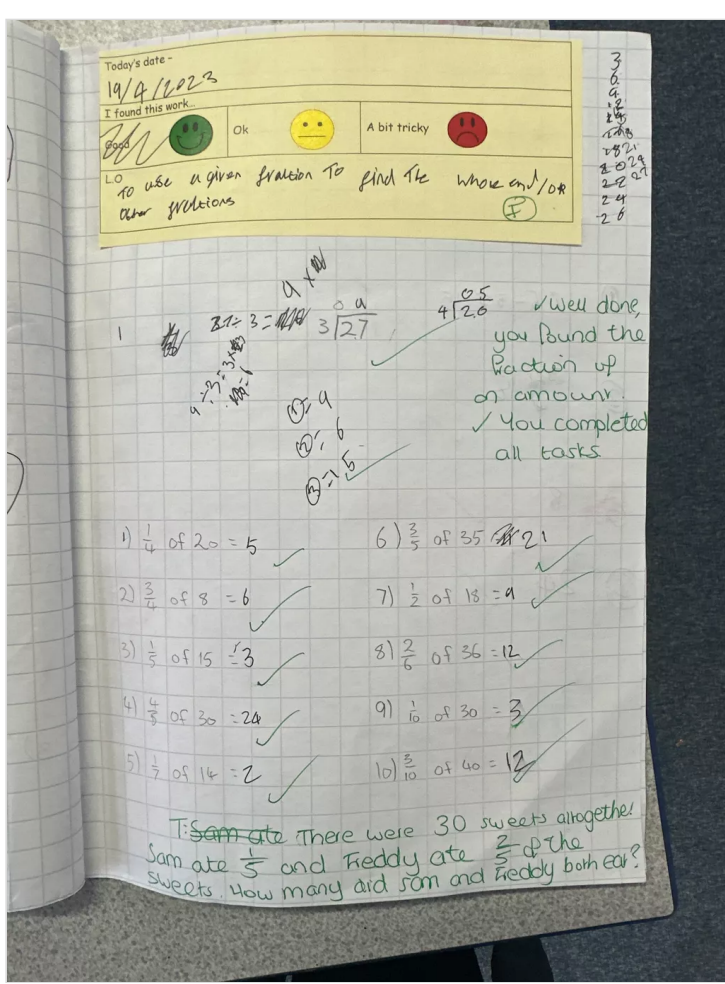 Today's date -
19/4/2023
I found this work...
Good
Ok
A bit tricky
LO
To use a given fraction To find The whole and/or
other fractions
I
3
6
9
12
15
21
24
27
24
26
1
27÷ 3 =
9 ×
0 9
3 27
0 5
4 20
9 ÷ 3 = 3 ×
= 6
① = 9
② = 6
③ = 15
✓ Well done,
you found the
fraction of
an amount.
✓ You completed
all tasks
1) 1/4 of 20 = 5
2) 3/4 of 8 = 6
3) 1/5 of 15 = 3
4) 4/5 of 30 = 24
5) 1/7 of 14 = 2
6) 3/5 of 35 21
7) 1/2 of 18 = 9
8) 2/6 of 36 = 12
9) 1/10 of 30 = 3
10) 3/10 of 40 = 12
T: Sam ate There were 30 sweets altogether
Sam ate 1/5 and Freddy ate 2/5 of the
sweets. How many did Sam and Freddy both eat?